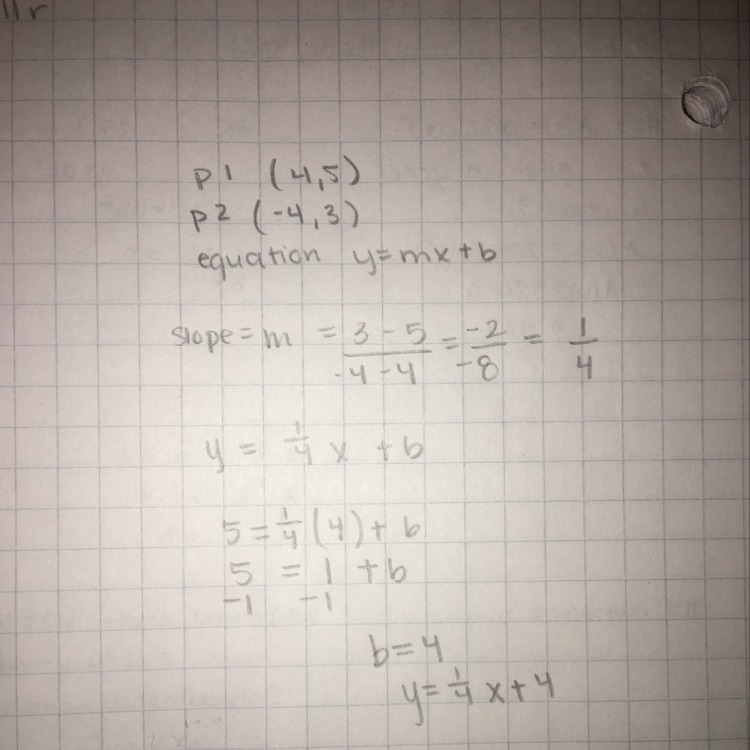 p1 (4,5)
p2 (-4,3)
equation y=mx+b
slope = m = 3 - 5 / -4 - 4 = -2 / -8 = 1 / 4
y = 1/4 x + b
5 = 1/4 (4) + b
5 = 1 + b
-1 -1
b = 4
y = 1/4 x + 4